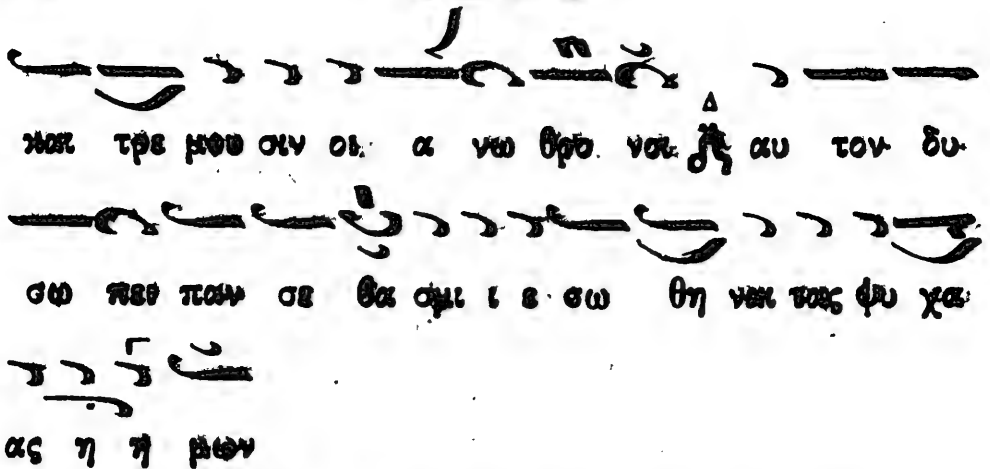 και τρε μου σιν οι α νω θρο νοι Δ αυ τον δυ
σω πει παν σε βα σμι ι ε σω θη ναι τας ψυ χα
ας η η μων